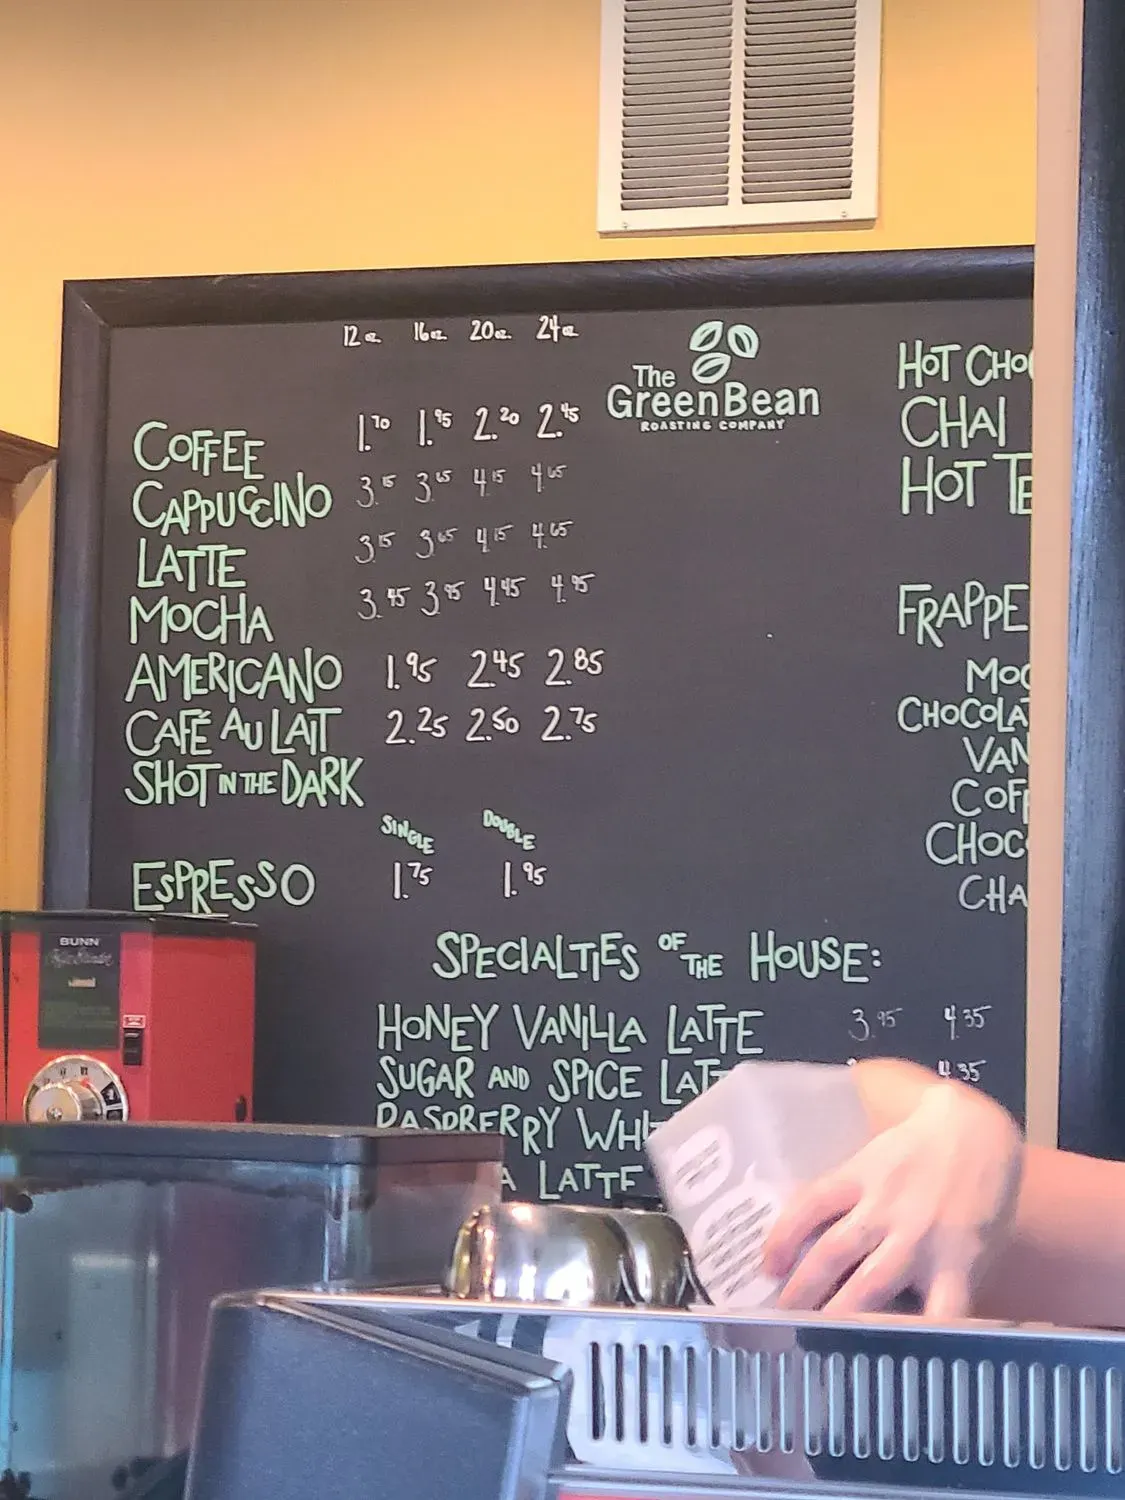 12 oz. 16 oz. 20 oz. 24 oz.
The
GreenBean
ROASTING COMPANY
COFFEE 1.70 1.95 2.20 2.45
CAPPUCCINO 3.15 3.65 4.15 4.65
LATTE 3.15 3.65 4.15 4.65
MOCHA 3.45 3.95 4.45 4.95
AMERICANO 1.95 2.45 2.85
CAFÉ AU LAIT 2.25 2.50 2.75
SHOT IN THE DARK
SINGLE DOUBLE
ESPRESSO 1.75 1.95
HOT CHO
CHAI
HOT TE
FRAPPE
MOC
CHOCOLAT
VAN
COFF
CHOC
CHA
SPECIALTIES OF THE HOUSE:
HONEY VANILLA LATTE 3.95 4.35
SUGAR AND SPICE LATT 4.35
RASPBERRY WHI
A LATTE
BUNN